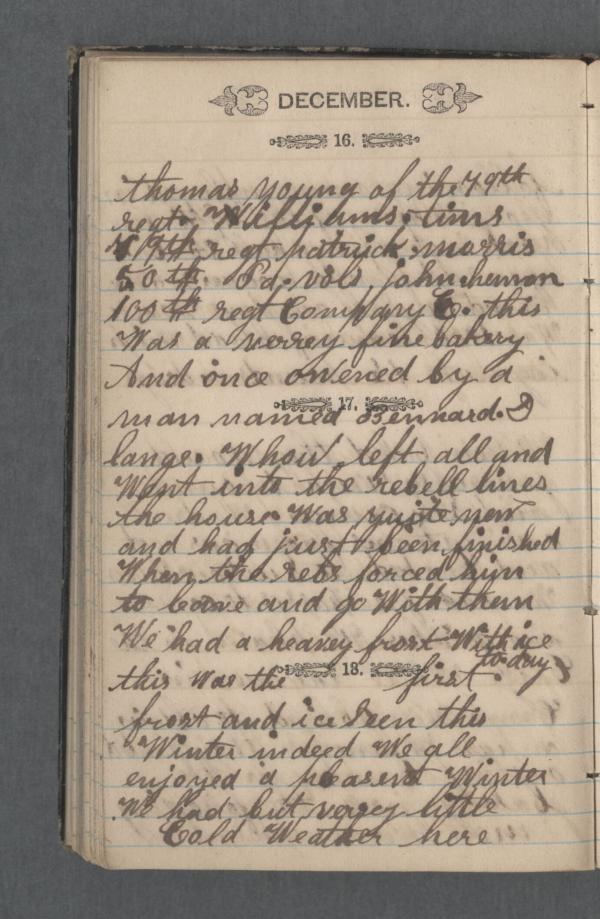 DECEMBER.
16.
thomas young of the 79th
regt. Williams. tims
79th regt patrick. morris
50th. Pa. vols, john. hemon
100th regt Company E. this
Was a verrey fine bakery
And once owened by a
17.
man named Bennard. D
lange. Whoiv left all and
Went into the rebell lines
the house Was quite new
and had just been finished
When the rebs forced him
to leave and go With them
We had a heavey frost With ice
to day
18.
this was the first
frost and ice Seen this
Winter indeed We all
enjoyed a pleasent Winter
We had but verrey little
Cold Weather here